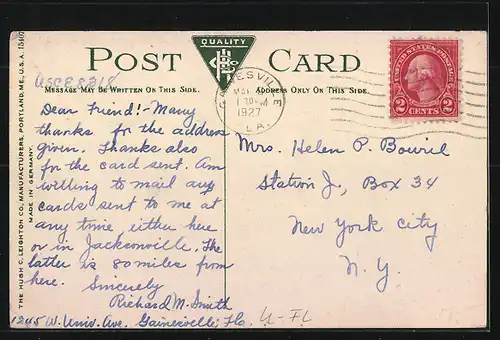 QUALITY
POST CARD
ASCE8318
MESSAGE MAY BE WRITTEN ON THIS SIDE.
ADDRESS ONLY ON THIS SIDE.
Dear Friend:- Many
thanks for the address
given. Thanks also
for the card sent. Am
willing to mail any
cards sent to me at
any time, either here
or in Jacksonville. The
latter is 80 miles from
here. Sincerely
Richard M. Smith
1245 W. Univ. Ave. Gainesville, Fla.
THE HUGH C. LEIGHTON CO., MANUFACTURERS, PORTLAND, ME., U.S.A.
MADE IN GERMANY.
ESVILLE
1927
LA.
UNITED STATES POSTAGE
2 CENTS 2
Mrs. Helen P. Bowril
Station J., Box 34
New York City
N.Y.
U-FL